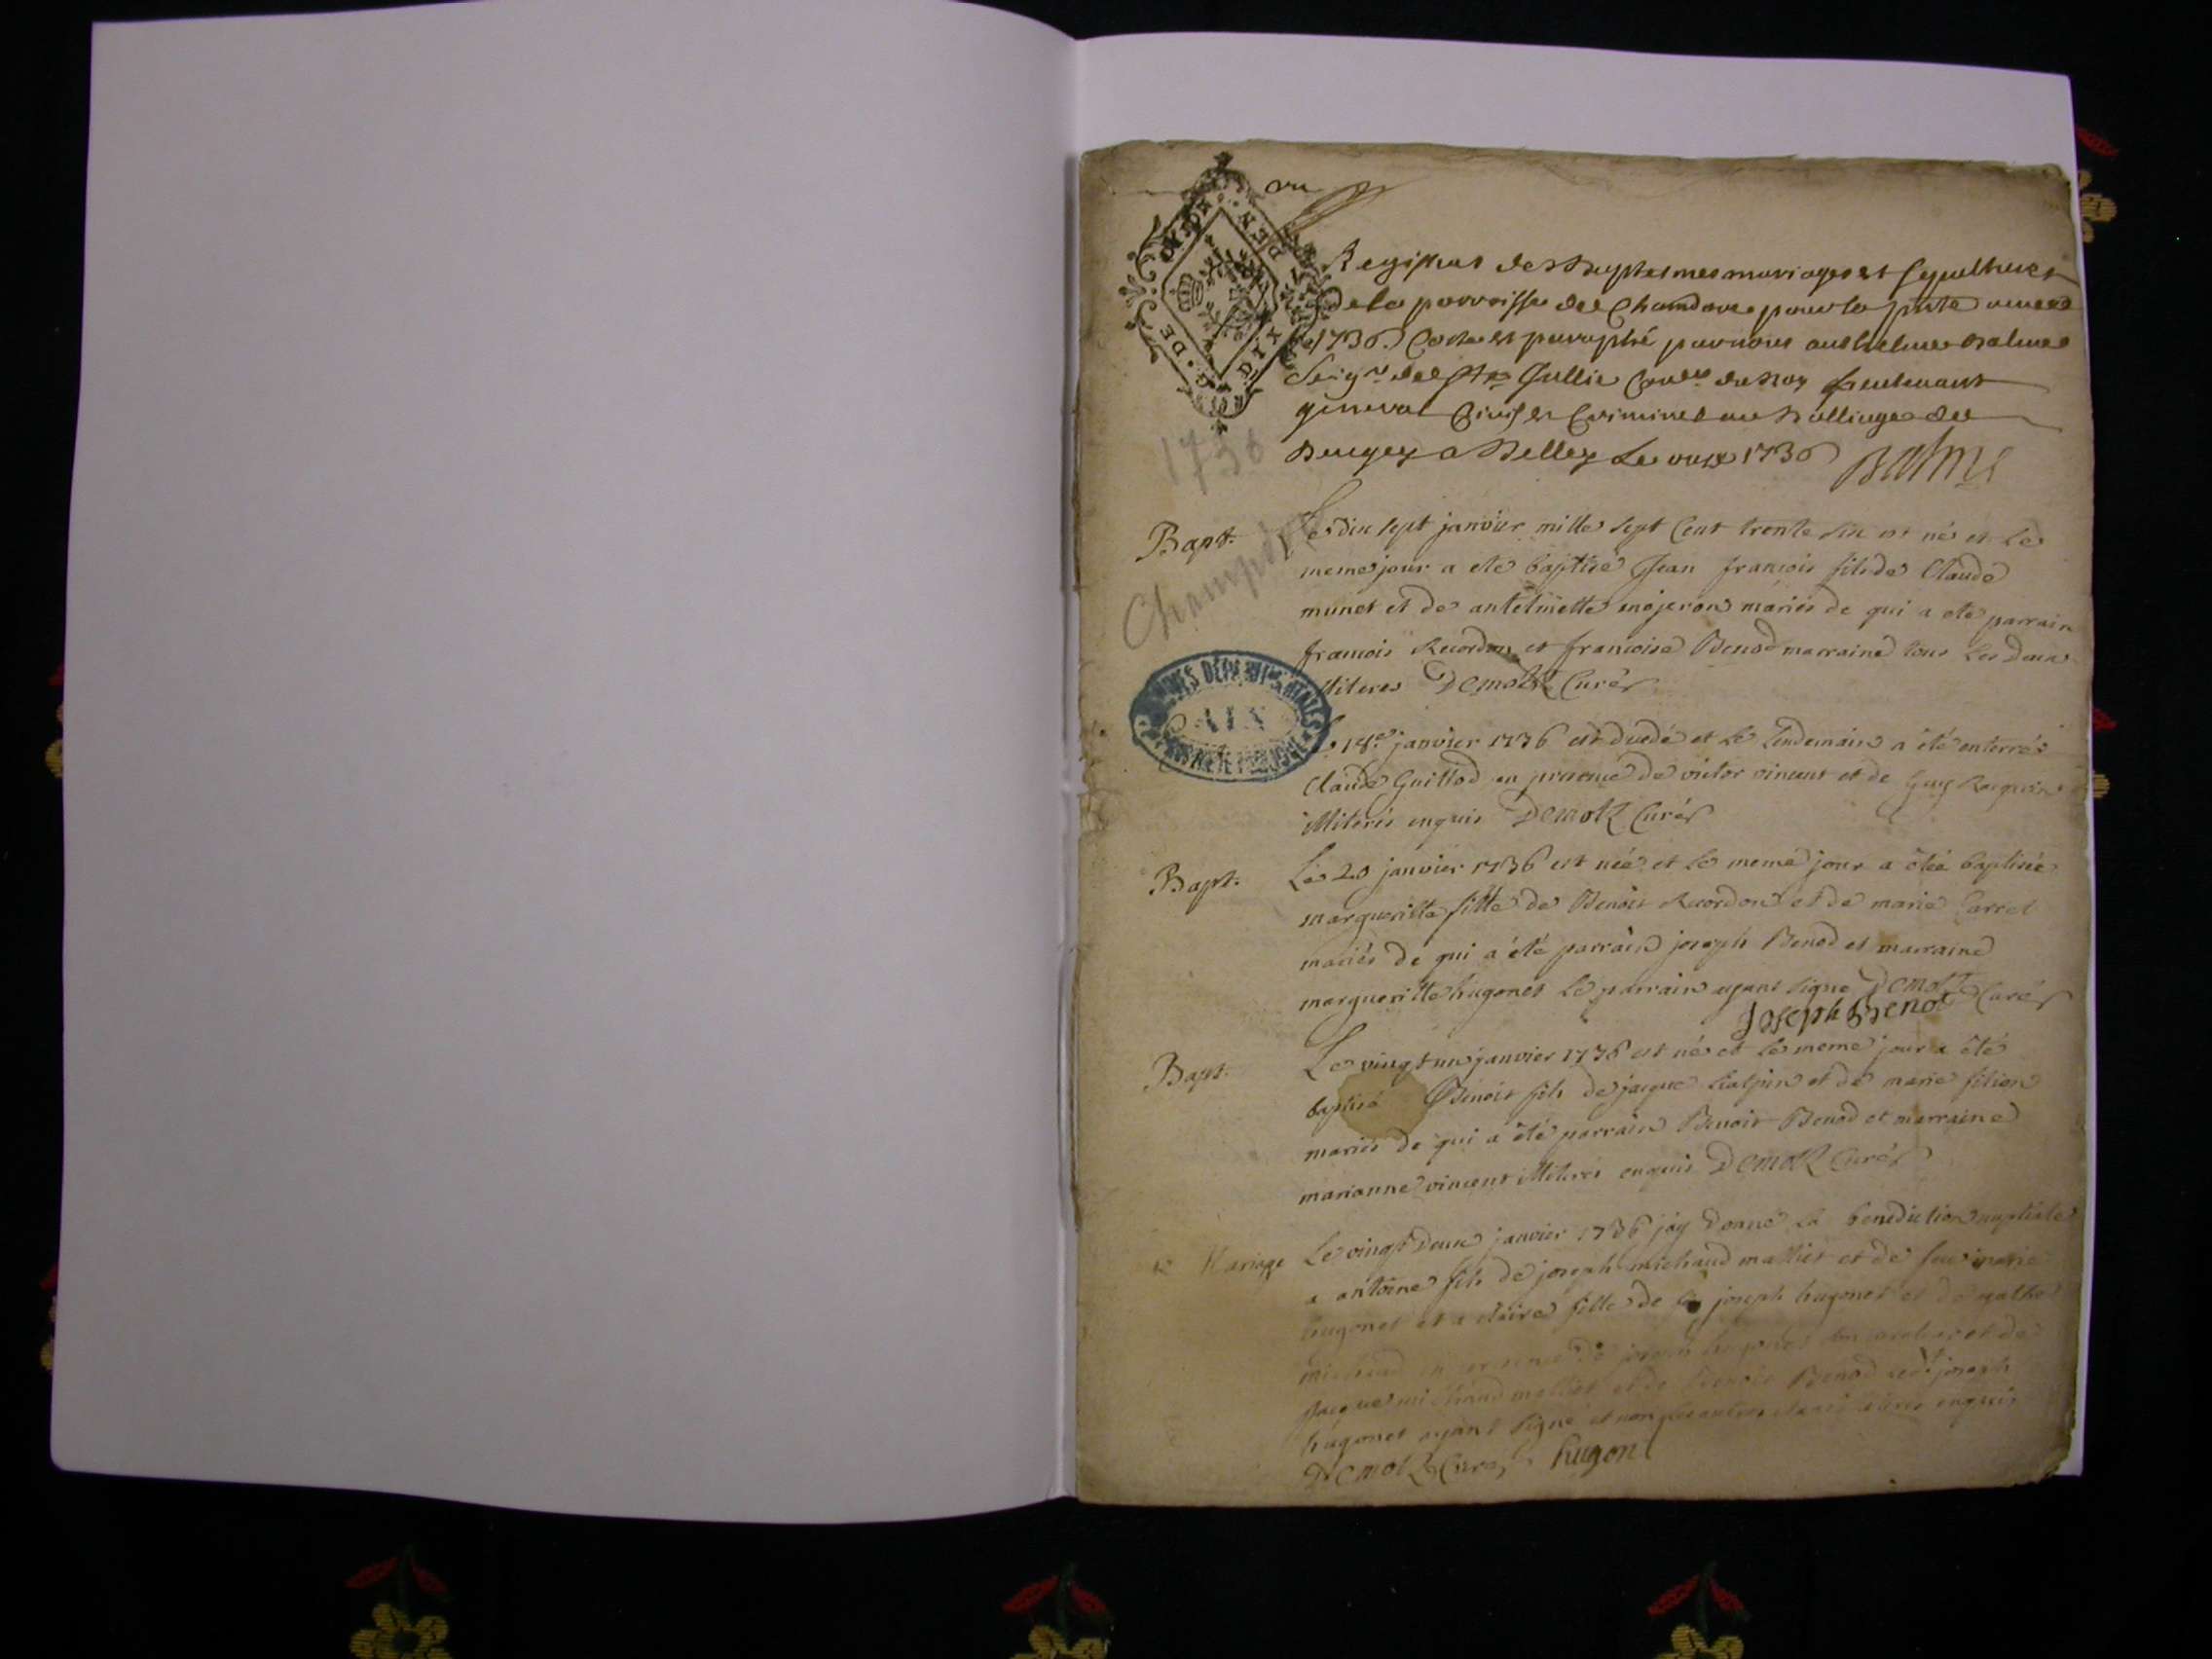 Registres des Baptesmes mariages et Sepultures
de la parroisse de Chandore pour la pnte année
1736. Cotte et paraphé par nous anthelme Balme
Seigr. de Ste Jullie Coner. du Roy Lieutenant
general Civil et Criminel au Balliage de
Bugey a Belley Le 1736 Balme
G. DE DIJON
1736
Bapt.
Le dix sept janvier mille sept Cent trente six est né et Le
meme jour a eté baptisé Jean francois fils de Claude
munet et de antelmette mariés de qui a eté parrain
francois Recordon et francoise Benod marraine tous Les deux
illiteres Demotz Curé
ARCHIVES DÉPARTEMENTALES
AIN
janvier 1736 est decedé et Le lendemain a été enterré
Claude Guillod en presence de victor vincent et de Guy
illiterés enquis Demotz Curé
Bapt.
Le 20 janvier 1736 est née et Le meme jour a étée baptisée
margueritte fille de Benoit Recordon et de marie Carrel
mariés de qui a été parrain joseph Benod et marraine
margueritte hugonet Le parrain ayant signé Demotz Curé
Joseph Benod
Bapt.
Le vingt un janvier 1736 est né et Le meme jour a été
baptisé Benoit fils de jacque et de marie filion
mariés de qui a été parrain Benoit Benod et marraine
marianne vincent illiterés enquis Demotz Curé
Mariage
Le vingt Deux janvier 1736 jay Donné La benediction nuptiale
a antoine fils de joseph michaud malliet et de feue marie
hugonet et a claire fille de joseph hugonet et de
michaud en presence de joseph hugonet et de
jacque michaud malliet et de Benoit Benod Ledt joseph
hugonet ayant signé et non Les autres enquis
Demotz Curé hugonet